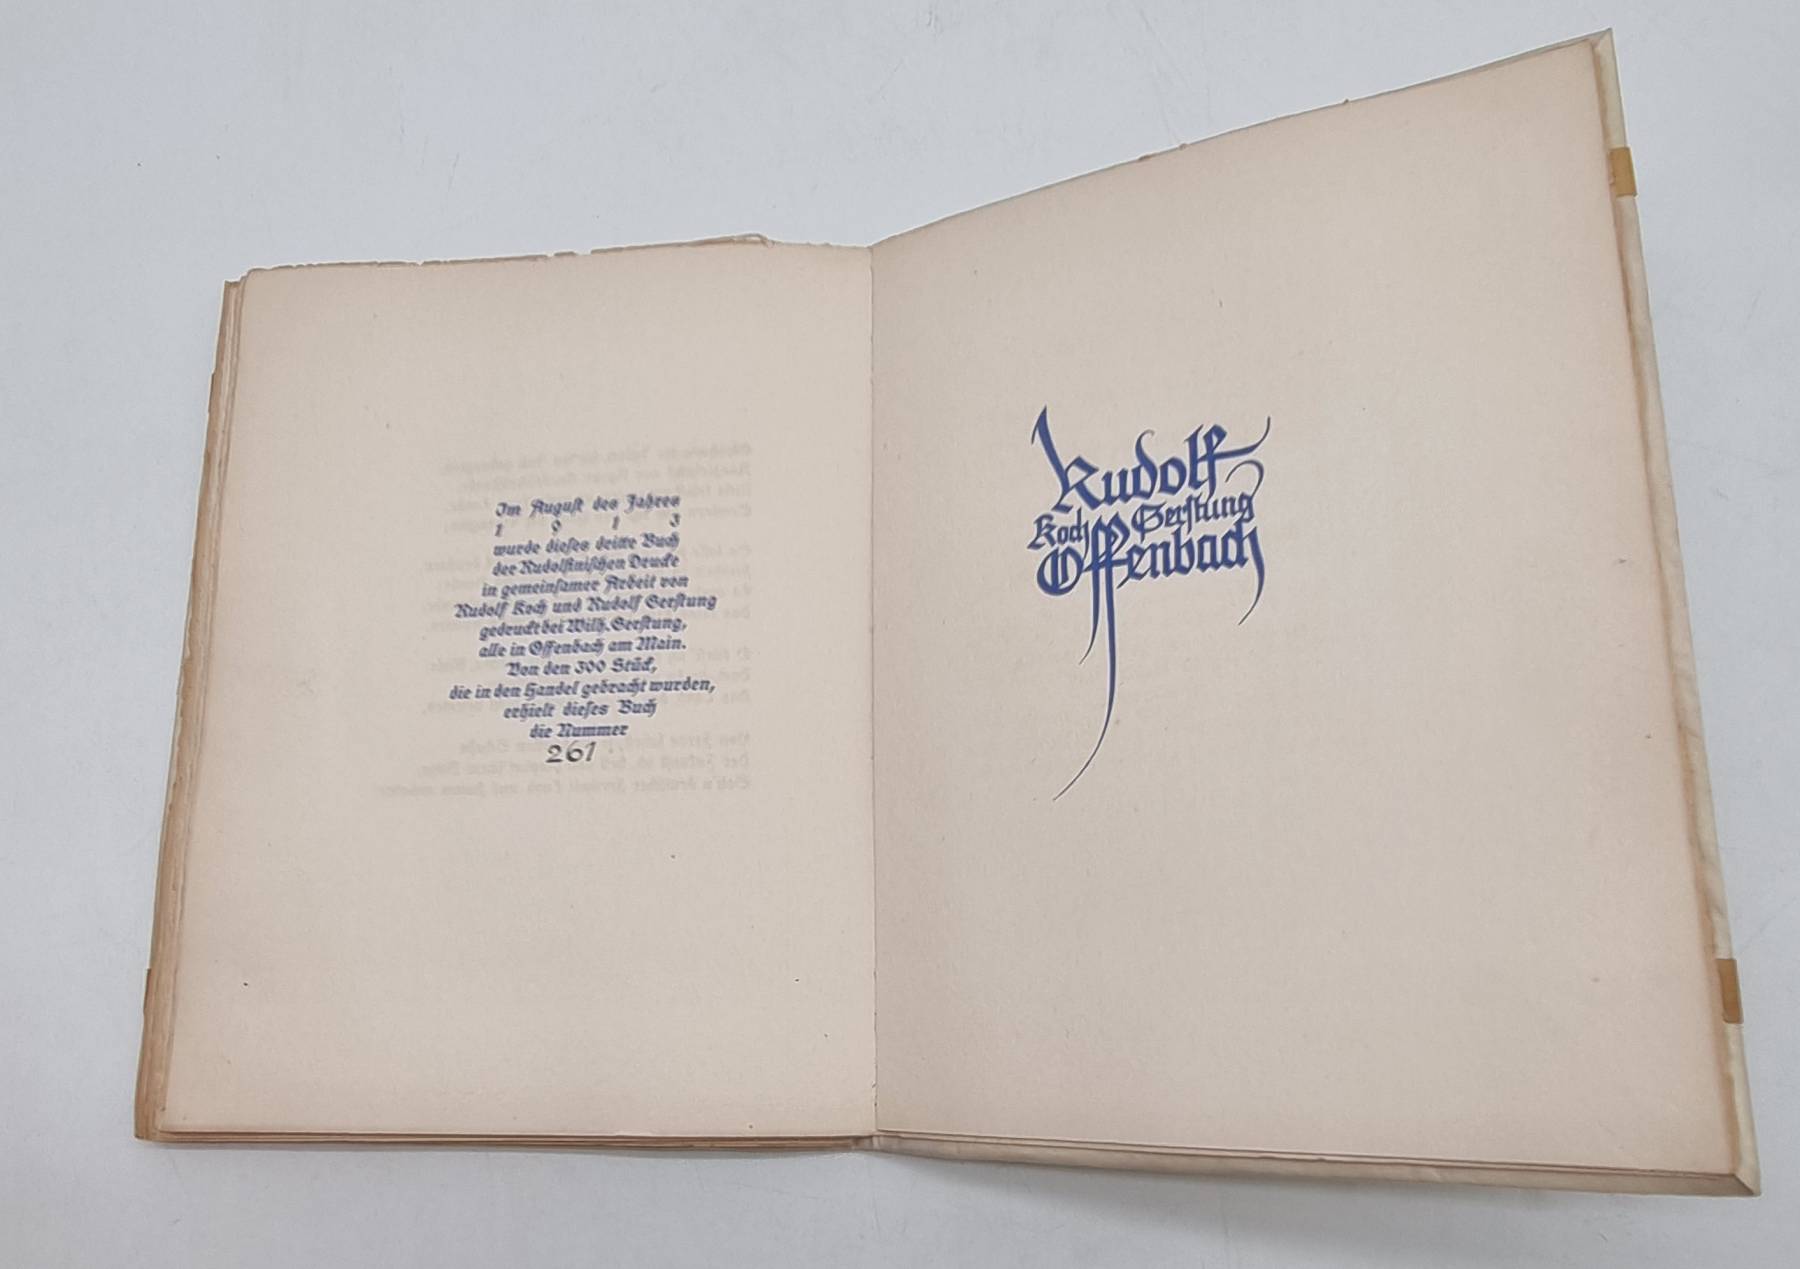 Im August des Jahres
1 9 1 3
wurde dieses dritte Buch
der Rudolfinischen Drucke
in gemeinsamer Arbeit von
Rudolf Koch und Rudolf Gerstung
gedruckt bei Wilh. Gerstung,
alle in Offenbach am Main.
Von den 300 Stück,
die in den Handel gebracht wurden,
erhielt dieses Buch
die Nummer
261
Rudolf
Koch Gerstung
Offenbach